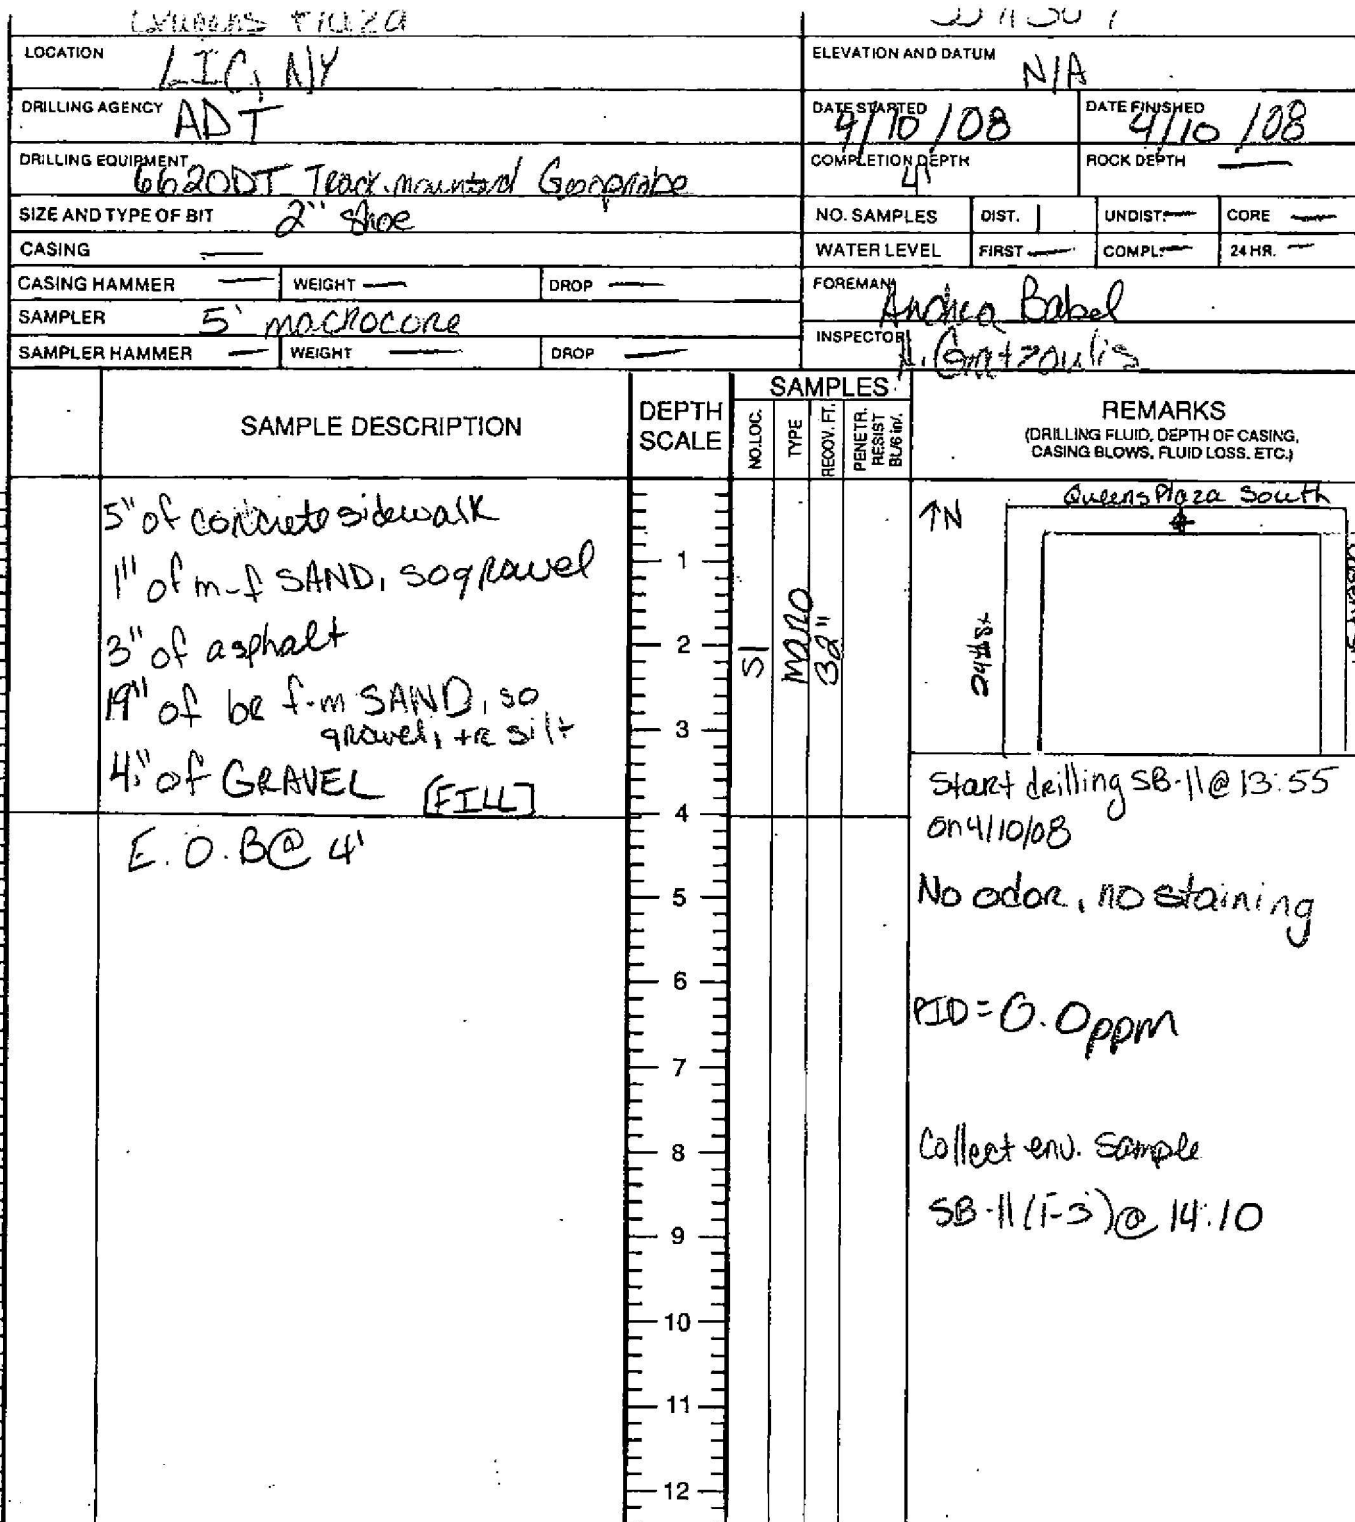 Queens Plaza
LOCATION LIC, NY
ELEVATION AND DATUM N/A
DRILLING AGENCY ADT
DATE STARTED 4/10/08
DATE FINISHED 4/10/08
DRILLING EQUIPMENT 6620DT Track-mounted Geoprobe
COMPLETION DEPTH 4'
ROCK DEPTH —
SIZE AND TYPE OF BIT 2" Shoe
NO. SAMPLES DIST. 1 UNDIST. — CORE —
CASING —
WATER LEVEL FIRST — COMPL. — 24 HR. —
CASING HAMMER — WEIGHT — DROP —
FOREMAN Andrea Babel
SAMPLER 5' macrocore
INSPECTOR
SAMPLER HAMMER — WEIGHT — DROP —
SAMPLE DESCRIPTION
DEPTH SCALE
SAMPLES
NO.LOC.
TYPE
RECOV. FT.
PENETR. RESIST BL/6 in.
REMARKS
(DRILLING FLUID, DEPTH OF CASING,
CASING BLOWS, FLUID LOSS, ETC.)
5" of concrete sidewalk
1" of m-f SAND, so gravel
3" of asphalt
19" of br f-m SAND, so
gravel, tr silt
4" of GRAVEL [FILL]
E.O.B @ 4'
1
2
3
4
5
6
7
8
9
10
11
12
S1
32"
↑N
Queens Plaza South
24th St
Start drilling SB-11 @ 13:55
on 4/10/08
No odor, no staining
PID = 0.0 ppm
Collect env. Sample
SB-11 (1-3') @ 14:10